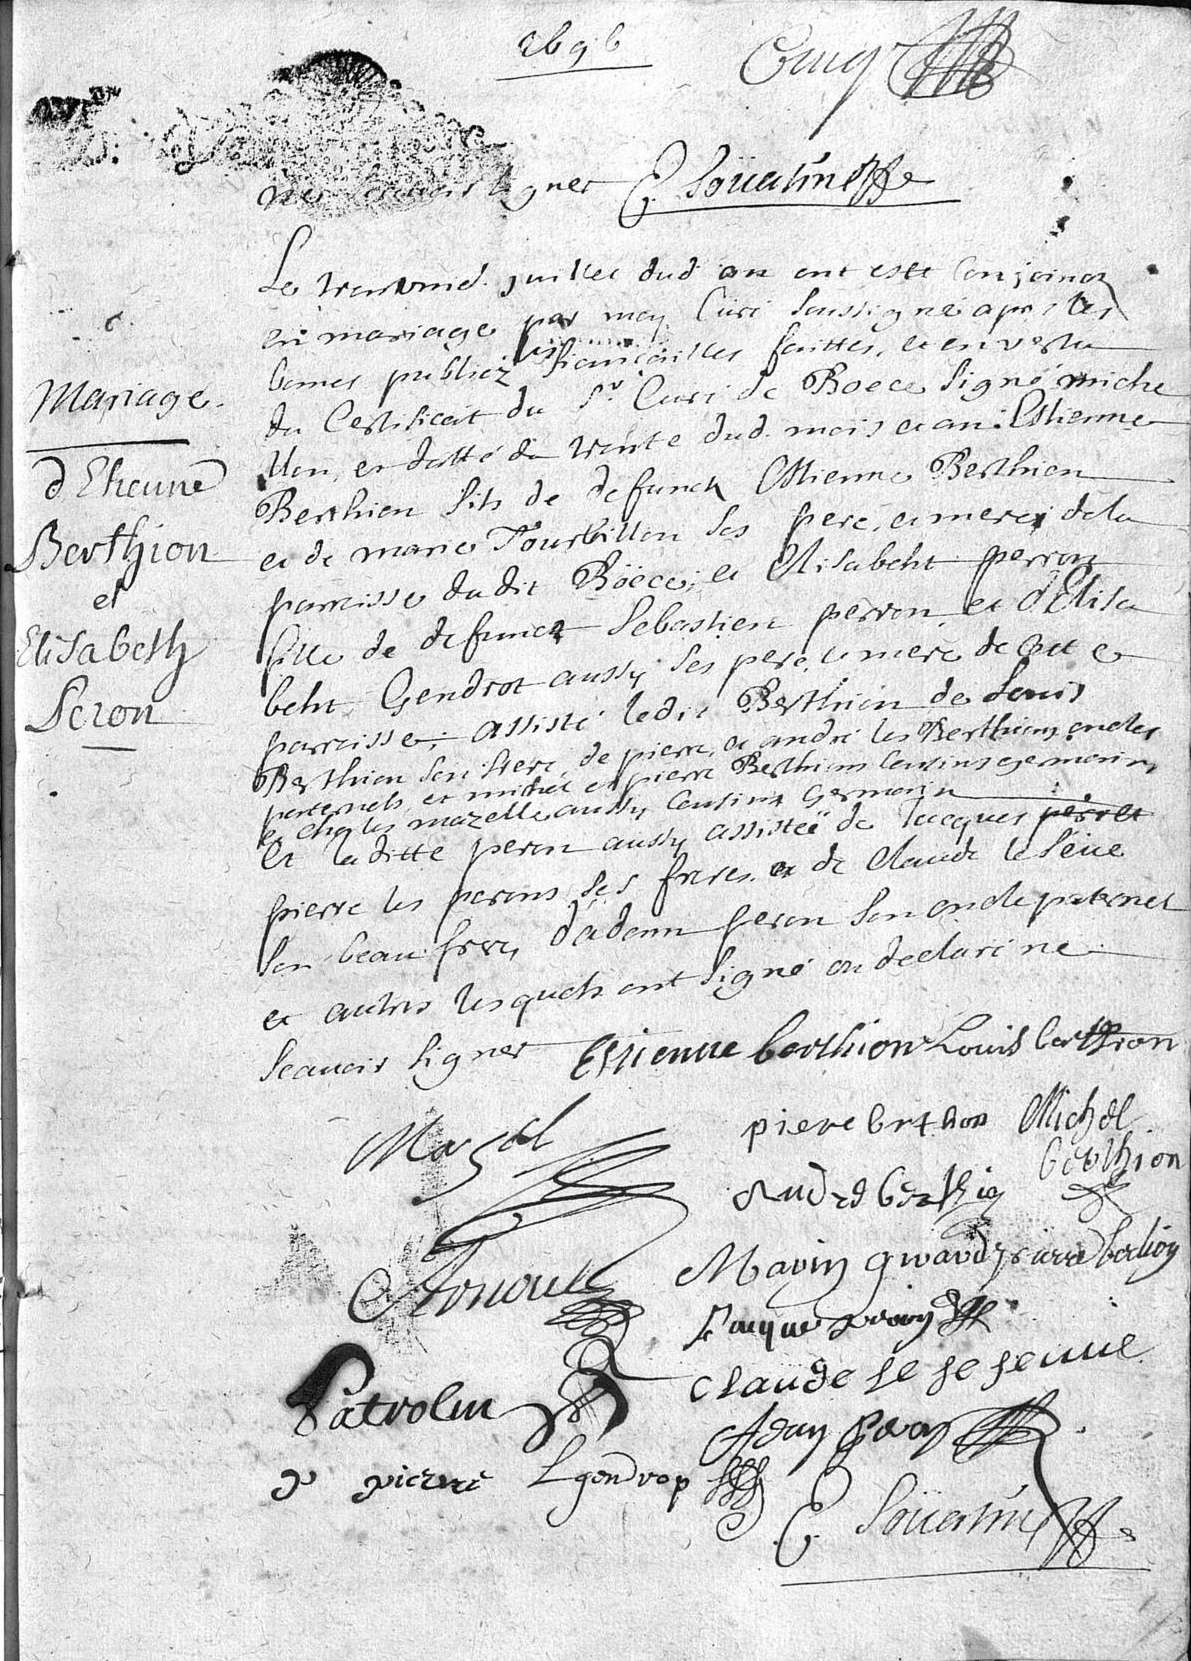 1696
Cinq
signer E. Soüatin
Le juillet dud an ont esté conjoinct
en mariage par moy Curé soussigné apres les
banes publiez les fiançailles faittes, et en vertu
du Certificat du Sr. Curé de Boece signé miche
llon, et datté du trente dud. mois et an: Estienne
Berthion fils de defunct Estienne Berthion
et de marie Tourtillon ses pere, et mere de la
parroisse du dit Böece; et Elisabeht perron
fille de defunct Sebastien perron, et d'Elisa
beht Gendrot aussy ses pere, et mere de cette
parroisse; assisté ledit Berthion de Louis
Berthion son frere, de pierre, et andré les Berthions oncles
paternels, et michel et pierre Berthions Cousins germains
et Charles mazelle aussy Cousin Germain
Et la ditte peron aussy assisteë de Jacques perr et
pierre les perons ses freres et de Claude le Seue
son beau frere, d'adam peron son oncle paternel
et autres lesquels ont signé ou declaré ne
scauoir signer Estienne berthion Louis berthion
Mazel
piere berthon Michel
berthion
André berthion
Marin girard pierre berthion
Jacques peron
Patrolin
Claude le se seuue
Adam Peron
pierre Lgendrop
E. Soüatin
Mariage
d'Etienne
Berthion
et
Elisabeth
Peron